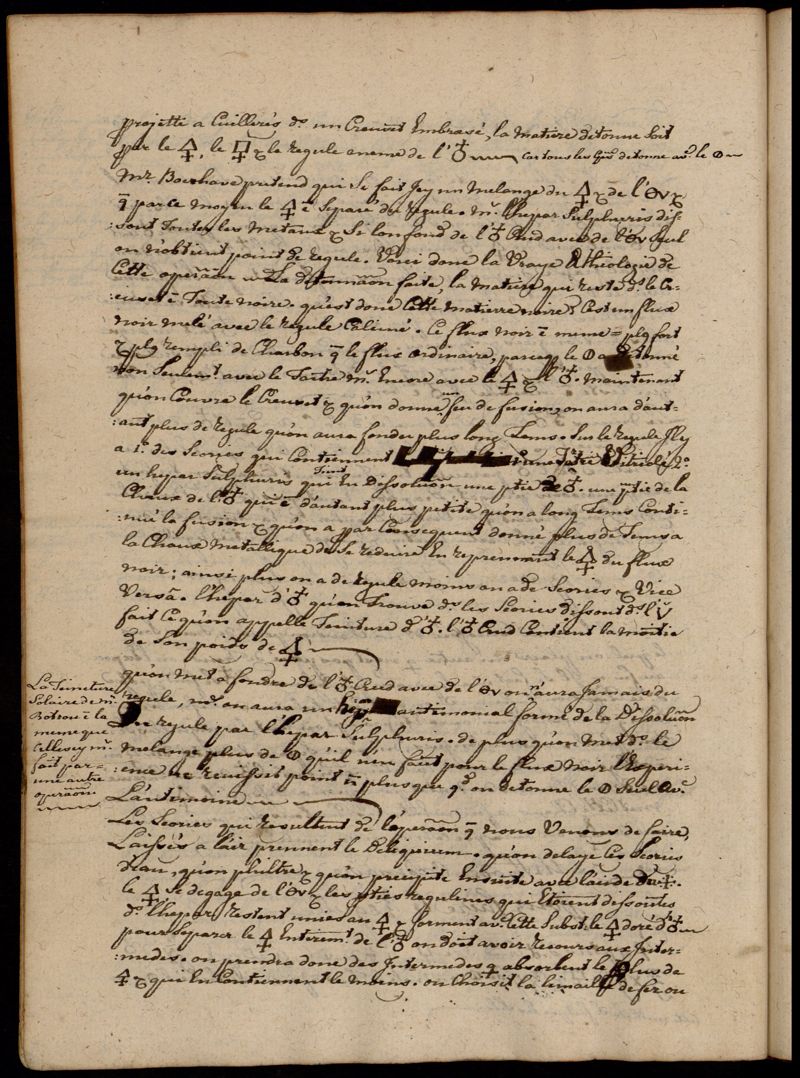 projetté a Cuillerés ds un Creuset Embrasé, la matiere detonne soit
par le 🜍, le et le regule meme de l'♁ car tous les detonne avc le
Mr Boerhave pretend qui se fait Icy un melange du 🜍 et de l'
q par ce moyen le 🜍 é Separé du regule. ms l'hepar Sulphuris dis-
:sout Toutes les metaux et Si lon fond de l'♁ Crud avec de l'
on n'obtient point de regule. Voici donc la Vraye Ætheologie de
Cette operãon La detonnãon faite, la matiere qui reste ds le Cr-
:euset é Toute noire. qu'est donc Cette matierre noire? C'est un flux
noir melé avec le regule. Ce flux noir é meme plq fort
et plq rempli de Charbon q le flux ordinaire, parceq le a detonné
non Seulemt avec le Tartre ms Encore avec le 🜍 et l'♁. maintenant
qu'on Couvre le Creuset et qu'on donne un feu de fusion, on aura d'aut-
:ant plus de regule qu'on aura fondu plus long Tems. Sur le regule Il y
a 1o des Scories qui Contiennent une Tartre Vitriolé, 2o
un hepar Sulphuris qui Tient En Dissoluãon une ptie de ♁. une ptie de la
Chaux de l'♁ qui é d'autant plus petite qu'on a long Tems Conti-
:nué la fusion et qu'on a par Consequent donné plus de Tems a
la Chaux metallique de Se reduire En reprennant le du flux
noir; ainsi plus on a de regule moins on a de Scories et Vice
Versâ. l'hepar d'♁ qu'on Trouve ds les Scories dissout ds l'
fait Ce qu'on appelle Teinture d'♁. l'♁ Crud Contient la moitie
de Son poids de 🜍
qu'on met a fondre de l'♁ Crud avec de l' on n'aura Jamais du
regule, ms on aura un hepar antimonial formé de la Dissoluãon
Du regule par l'hepar Sulphuris. de plus qu'on met ds le
melange plus de qu'il n'en faut pour le flux noir l'Experi-
:ence ne reuissit point plus que qd on detonne le Seul avc
L'antimoine
La Teinture
Solaire de mr
Botrou é la
meme que
Celle cy ms
fait par
une autre
operãon
Les Scories qui resultent de l'operãon q nous Venons de faire,
Laissés a l'air prennent le Deliquium. qu'on delaye Ces Scories
d'eau, qu'on philtre et qu'on precipite Ensuite avec l'acide du
le 🜍 Se degage de l' et les pties regulines qui Etoient dissoutes
ds l'hepar, restent unies au 🜍 et forment avc cette Subst: le 🜍 doré d'♁
pour Separer le 🜍 Entieremt de l'♁ on doit avoir recours aux Inter-
:medes. on prendra donc des Intermedes q absorbent le plus de
🜍 et qui En Contiennent le moins. on Choisit la limaille de fer ou